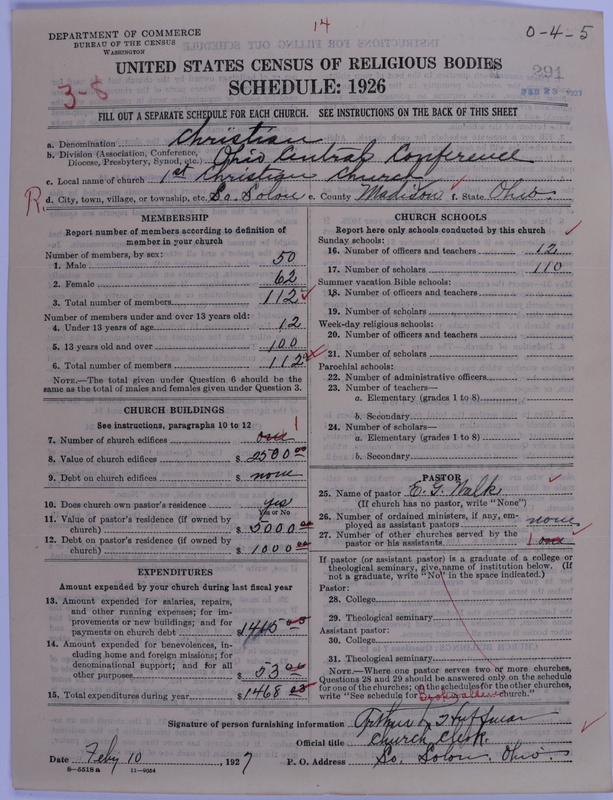 14
0-4-5
DEPARTMENT OF COMMERCE
BUREAU OF THE CENSUS
WASHINGTON
291
3-8
UNITED STATES CENSUS OF RELIGIOUS BODIES
SCHEDULE: 1926
FILL OUT A SEPARATE SCHEDULE FOR EACH CHURCH. SEE INSTRUCTIONS ON THE BACK OF THIS SHEET
a. Denomination Christian
b. Division (Association, Conference, Diocese, Presbytery, Synod, etc.) Ohio Central Conference
c. Local name of church 1st Christian Church
R
d. City, town, village, or township, etc. So. Solon e. County Madison f. State Ohio
MEMBERSHIP
Report number of members according to definition of
member in your church
Number of members, by sex:
1. Male 50
2. Female 62
3. Total number of members 112
Number of members under and over 13 years old:
4. Under 13 years of age 12
5. 13 years old and over 100
6. Total number of members 112
NOTE.—The total given under Question 6 should be the
same as the total of males and females given under Question 3.
CHURCH BUILDINGS
See instructions, paragraphs 10 to 12
7. Number of church edifices one 1
8. Value of church edifices $ 2500 00
9. Debt on church edifices $ none
10. Does church own pastor's residence yes
Yes or No
11. Value of pastor's residence (if owned by
church) $ 5000 00
12. Debt on pastor's residence (if owned by
church) $ 1000 00
EXPENDITURES
Amount expended by your church during last fiscal year
13. Amount expended for salaries, repairs,
and other running expenses; for im-
provements or new buildings; and for
payments on church debt $ 1415
14. Amount expended for benevolences, in-
cluding home and foreign missions; for
denominational support; and for all
other purposes $ 53 00
15. Total expenditures during year $ 1468
CHURCH SCHOOLS
Report here only schools conducted by this church
Sunday schools:
16. Number of officers and teachers 12
17. Number of scholars 110
Summer vacation Bible schools:
18. Number of officers and teachers
19. Number of scholars
Week-day religious schools:
20. Number of officers and teachers
21. Number of scholars
Parochial schools:
22. Number of administrative officers
23. Number of teachers—
a. Elementary (grades 1 to 8)
b. Secondary
24. Number of scholars—
a. Elementary (grades 1 to 8)
b. Secondary
PASTOR
25. Name of pastor E. G. Walk
(If church has no pastor, write "None")
26. Number of ordained ministers, if any, em-
ployed as assistant pastors none
27. Number of other churches served by the
pastor or his assistants 1 one
If pastor (or assistant pastor) is a graduate of a college or
theological seminary, give name of institution below. (If
not a graduate, write "No" in the space indicated.)
Pastor:
28. College
29. Theological seminary
Assistant pastor:
30. College
31. Theological seminary
NOTE.—Where one pastor serves two or more churches,
Questions 28 and 29 should be answered only on the schedule
for one of the churches; on the schedules for the other churches,
write "See schedule for church."
Signature of person furnishing information Huffman
Official title Church Clerk.
Date Feby 10, 1927 P. O. Address So. Solon, Ohio.
8-5518a 11-9054